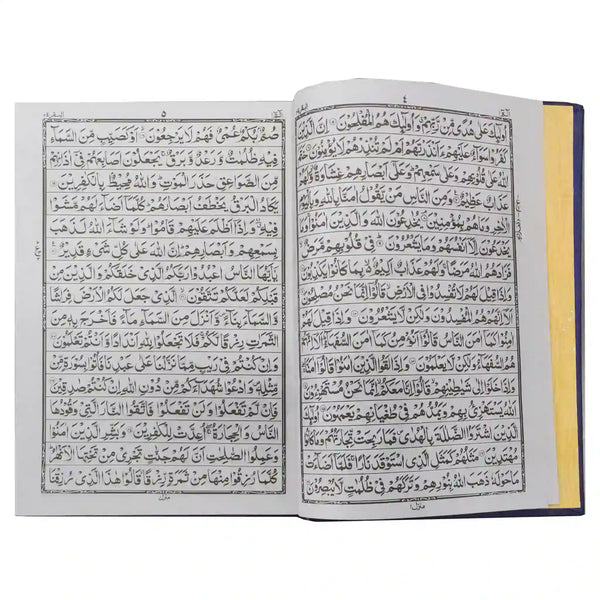 ٤
أُولٰٓئِكَ عَلٰى هُدًى مِّنْ رَّبِّهِمْ ۗ وَأُولٰٓئِكَ هُمُ الْمُفْلِحُوْنَ ۝ اِنَّ الَّذِيْنَ
كَفَرُوْا سَوَآءٌ عَلَيْهِمْ ءَاَنْذَرْتَهُمْ اَمْ لَمْ تُنْذِرْهُمْ لَا يُؤْمِنُوْنَ ۝ خَتَمَ
اللّٰهُ عَلٰى قُلُوْبِهِمْ وَعَلٰى سَمْعِهِمْ ۗ وَعَلٰٓى اَبْصَارِهِمْ غِشَاوَةٌ وَّلَهُمْ
عَذَابٌ عَظِيْمٌ ۝ وَمِنَ النَّاسِ مَنْ يَّقُوْلُ اٰمَنَّا بِاللّٰهِ وَبِالْيَوْمِ
الْاٰخِرِ وَمَا هُمْ بِمُؤْمِنِيْنَ ۝ يُخٰدِعُوْنَ اللّٰهَ وَالَّذِيْنَ اٰمَنُوْا ۚ وَمَا
يَخْدَعُوْنَ اِلَّآ اَنْفُسَهُمْ وَمَا يَشْعُرُوْنَ ۝ فِيْ قُلُوْبِهِمْ مَّرَضٌ ۙ
فَزَادَهُمُ اللّٰهُ مَرَضًا ۚ وَلَهُمْ عَذَابٌ اَلِيْمٌ ۢ بِمَا كَانُوْا يَكْذِبُوْنَ ۝
وَاِذَا قِيْلَ لَهُمْ لَا تُفْسِدُوْا فِي الْاَرْضِ ۙ قَالُوْٓا اِنَّمَا نَحْنُ مُصْلِحُوْنَ ۝
اَلَآ اِنَّهُمْ هُمُ الْمُفْسِدُوْنَ وَلٰكِنْ لَّا يَشْعُرُوْنَ ۝ وَاِذَا قِيْلَ لَهُمْ
اٰمِنُوْا كَمَآ اٰمَنَ النَّاسُ قَالُوْٓا اَنُؤْمِنُ كَمَآ اٰمَنَ السُّفَهَآءُ ۗ اَلَآ اِنَّهُمْ
هُمُ السُّفَهَآءُ وَلٰكِنْ لَّا يَعْلَمُوْنَ ۝ وَاِذَا لَقُوا الَّذِيْنَ اٰمَنُوْا قَالُوْٓا اٰمَنَّا ۚ
وَاِذَا خَلَوْا اِلٰى شَيٰطِيْنِهِمْ ۙ قَالُوْٓا اِنَّا مَعَكُمْ ۙ اِنَّمَا نَحْنُ مُسْتَهْزِءُوْنَ ۝
اَللّٰهُ يَسْتَهْزِئُ بِهِمْ وَيَمُدُّهُمْ فِيْ طُغْيَانِهِمْ يَعْمَهُوْنَ ۝ اُولٰٓئِكَ
الَّذِيْنَ اشْتَرَوُا الضَّلٰلَةَ بِالْهُدٰى ۠ فَمَا رَبِحَتْ تِّجَارَتُهُمْ وَمَا كَانُوْا
مُهْتَدِيْنَ ۝ مَثَلُهُمْ كَمَثَلِ الَّذِي اسْتَوْقَدَ نَارًا ۚ فَلَمَّآ اَضَآءَتْ
مَا حَوْلَهٗ ذَهَبَ اللّٰهُ بِنُوْرِهِمْ وَتَرَكَهُمْ فِيْ ظُلُمٰتٍ لَّا يُبْصِرُوْنَ ۝
منزل ١
البقرة ٢
٥
صُمٌّ ۢ بُكْمٌ عُمْيٌ فَهُمْ لَا يَرْجِعُوْنَ ۝ اَوْ كَصَيِّبٍ مِّنَ السَّمَآءِ
فِيْهِ ظُلُمٰتٌ وَّرَعْدٌ وَّبَرْقٌ ۚ يَجْعَلُوْنَ اَصَابِعَهُمْ فِيْٓ اٰذَانِهِمْ
مِّنَ الصَّوَاعِقِ حَذَرَ الْمَوْتِ ۗ وَاللّٰهُ مُحِيْطٌ ۢ بِالْكٰفِرِيْنَ ۝
يَكَادُ الْبَرْقُ يَخْطَفُ اَبْصَارَهُمْ ۗ كُلَّمَآ اَضَآءَ لَهُمْ مَّشَوْا
فِيْهِ ۙ وَاِذَآ اَظْلَمَ عَلَيْهِمْ قَامُوْا ۗ وَلَوْ شَآءَ اللّٰهُ لَذَهَبَ
بِسَمْعِهِمْ وَاَبْصَارِهِمْ ۗ اِنَّ اللّٰهَ عَلٰى كُلِّ شَيْءٍ قَدِيْرٌ ۝
يٰٓاَيُّهَا النَّاسُ اعْبُدُوْا رَبَّكُمُ الَّذِيْ خَلَقَكُمْ وَالَّذِيْنَ مِنْ
قَبْلِكُمْ لَعَلَّكُمْ تَتَّقُوْنَ ۝ الَّذِيْ جَعَلَ لَكُمُ الْاَرْضَ فِرَاشًا
وَّالسَّمَآءَ بِنَآءً ۠ وَّاَنْزَلَ مِنَ السَّمَآءِ مَآءً فَاَخْرَجَ بِهٖ مِنَ
الثَّمَرٰتِ رِزْقًا لَّكُمْ ۚ فَلَا تَجْعَلُوْا لِلّٰهِ اَنْدَادًا وَّاَنْتُمْ تَعْلَمُوْنَ ۝
وَاِنْ كُنْتُمْ فِيْ رَيْبٍ مِّمَّا نَزَّلْنَا عَلٰى عَبْدِنَا فَأْتُوْا بِسُوْرَةٍ مِّنْ
مِّثْلِهٖ ۠ وَادْعُوْا شُهَدَآءَكُمْ مِّنْ دُوْنِ اللّٰهِ اِنْ كُنْتُمْ صٰدِقِيْنَ ۝
فَاِنْ لَّمْ تَفْعَلُوْا وَلَنْ تَفْعَلُوْا فَاتَّقُوا النَّارَ الَّتِيْ وَقُوْدُهَا
النَّاسُ وَالْحِجَارَةُ ۖ اُعِدَّتْ لِلْكٰفِرِيْنَ ۝ وَبَشِّرِ الَّذِيْنَ اٰمَنُوْا
وَعَمِلُوا الصّٰلِحٰتِ اَنَّ لَهُمْ جَنّٰتٍ تَجْرِيْ مِنْ تَحْتِهَا الْاَنْهٰرُ ۗ
كُلَّمَا رُزِقُوْا مِنْهَا مِنْ ثَمَرَةٍ رِّزْقًا ۙ قَالُوْا هٰذَا الَّذِيْ رُزِقْنَا
منزل